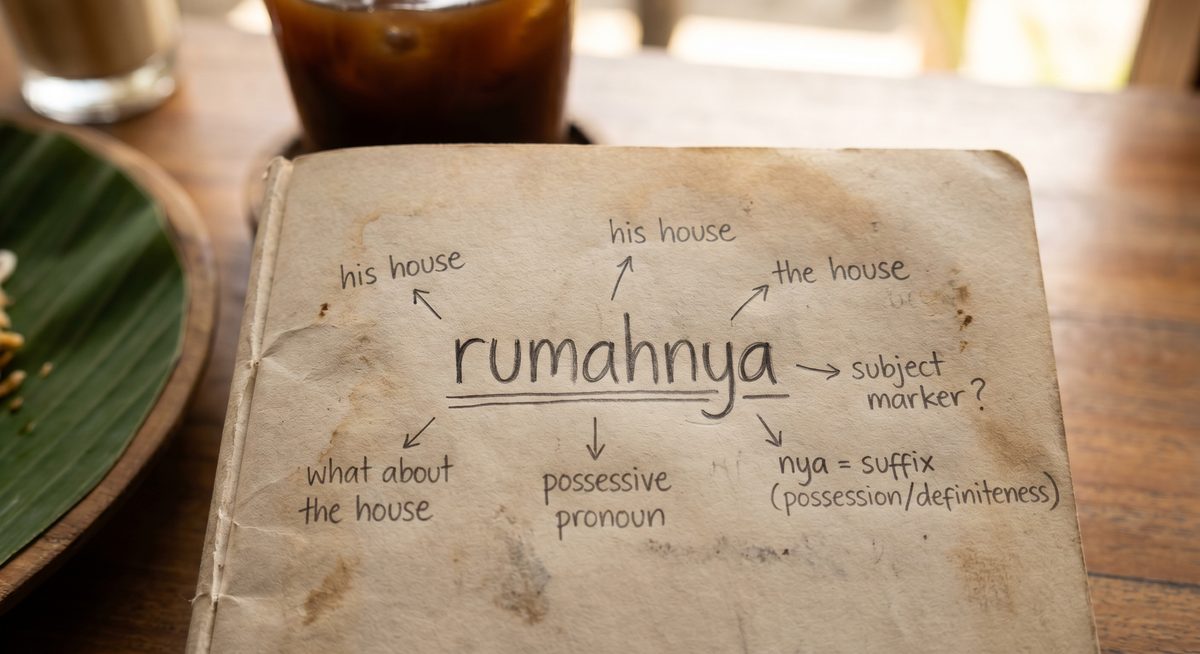 his house
his house
the house
rumahnya
subject
marker?
what about
the house
possessive
pronoun
nya = suffix
(possession/definiteness)